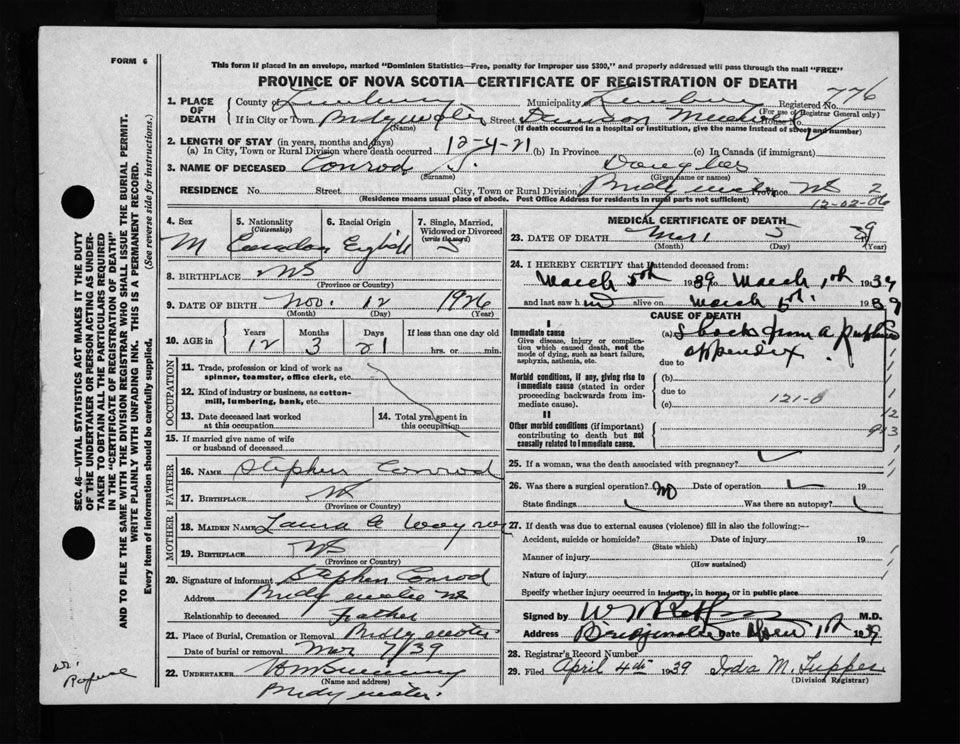 FORM 6
This form if placed in an envelope, marked "Dominion Statistics—Free, penalty for improper use $300," and properly addressed will pass through the mail "FREE"
PROVINCE OF NOVA SCOTIA—CERTIFICATE OF REGISTRATION OF DEATH
SEC. 46—VITAL STATISTICS ACT MAKES IT THE DUTY
OF THE UNDERTAKER OR PERSON ACTING AS UNDER-
TAKER TO OBTAIN ALL THE PARTICULARS REQUIRED
IN THE "CERTIFICATE OF REGISTRATION OF DEATH"
AND TO FILE THE SAME WITH THE DIVISION REGISTRAR WHO SHALL ISSUE THE BURIAL PERMIT.
WRITE PLAINLY WITH UNFADING INK. THIS IS A PERMANENT RECORD.
Every item of information should be carefully supplied. (See reverse side for instructions.)
1. PLACE OF DEATH
County of Lunenburg Municipality Lunenburg Registered No. 776
(For use of Registrar General only)
If in City or Town Bridgewater Street Dawson House No.
(Name) (If death occurred in a hospital or institution, give the name instead of street and number)
2. LENGTH OF STAY (in years, months and days)
(a) In City, Town or Rural Division where death occurred 12-4-21 (b) In Province (c) In Canada (if immigrant)
3. NAME OF DECEASED Conrod S. Douglas
(Surname) (Given name or names)
RESIDENCE No. Street City, Town or Rural Division Bridgewater Province NS 2
(Residence means usual place of abode. Post Office Address for residents in rural parts not sufficient)
12-02-06
4. Sex M
5. Nationality (Citizenship) Canadian
6. Racial Origin English
7. Single, Married, Widowed or Divorced (write the word) S
8. BIRTHPLACE NS
(Province or Country)
9. DATE OF BIRTH Nov. 12 1926
(Month) (Day) (Year)
10. AGE in Years Months Days If less than one day old
12 3 21 hrs. or min.
OCCUPATION
11. Trade, profession or kind of work as spinner, teamster, office clerk, etc.
12. Kind of industry or business, as cotton-mill, lumbering, bank, etc.
13. Date deceased last worked at this occupation
14. Total yrs. spent in this occupation
15. If married give name of wife or husband of deceased
FATHER
16. NAME Stephen Conrod
17. BIRTHPLACE NS
(Province or Country)
MOTHER
18. MAIDEN NAME Laura
19. BIRTHPLACE NS
(Province or Country)
20. Signature of informant Stephen Conrod
Address Bridgewater NS
Relationship to deceased Father
21. Place of Burial, Cremation or Removal Bridgewater
Date of burial or removal Mar 7/39
22. UNDERTAKER
(Name and address)
Bridgewater
MEDICAL CERTIFICATE OF DEATH
23. DATE OF DEATH Mar. 5 39
(Month) (Day) (Year)
24. I HEREBY CERTIFY that I attended deceased from:
March 5th 1939 to March 1939
and last saw h alive on March 1939
CAUSE OF DEATH
I
Immediate cause
Give disease, injury or complication which caused death, not the mode of dying, such as heart failure, asphyxia, asthenia, etc.
(a) Shock from a ruptured
appendix
due to
Morbid conditions, if any, giving rise to immediate cause (stated in order proceeding backwards from immediate cause).
(b)
due to
(c) 121-
II
Other morbid conditions (if important) contributing to death but not causally related to immediate cause.
25. If a woman, was the death associated with pregnancy?
26. Was there a surgical operation? No Date of operation 19
State findings Was there an autopsy?
27. If death was due to external causes (violence) fill in also the following:—
Accident, suicide or homicide? Date of injury 19
(State which)
Manner of injury
(How sustained)
Nature of injury
Specify whether injury occurred in industry, in home, or in public place
Signed by M.D.
Address Bridgewater Date 1939
28. Registrar's Record Number
29. Filed April 4th 1939 Ida M. Tupper
(Division Registrar)